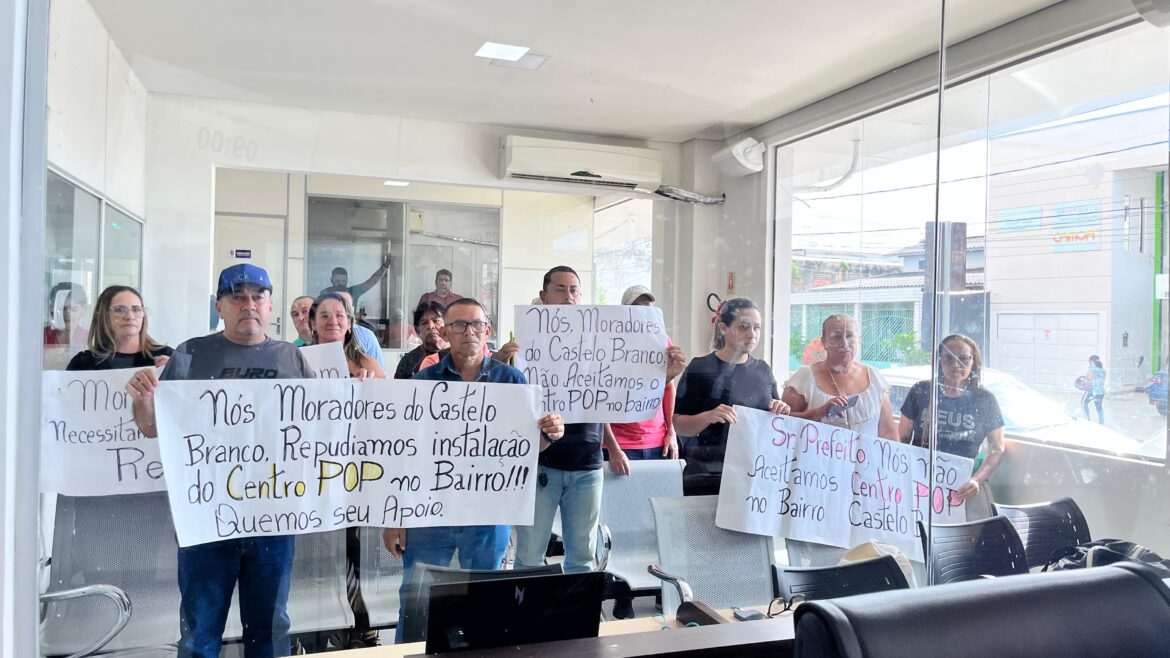 09:00
CK
EURO
Mor
Necessitam
Re
Nós Moradores do Castelo
Branco. Repudiamos instalação
do Centro POP no Bairro!!!
Quemos seu Apoio.
Nós, Moradores
do Castelo Branco
Não Aceitamos o
Centro POP no bairro.
Sr. Prefeito, Nós Não
Aceitamos Centro POP
no Bairro Castelo B
DEUS